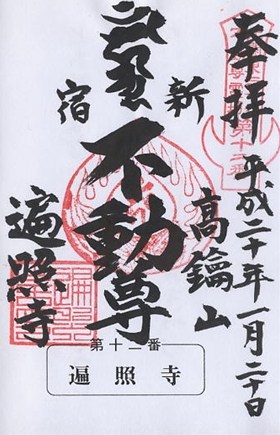 奉拝
平成二十年一月二十日
新宿
高鑰山
不動尊
遍照寺
第十二番
遍照寺